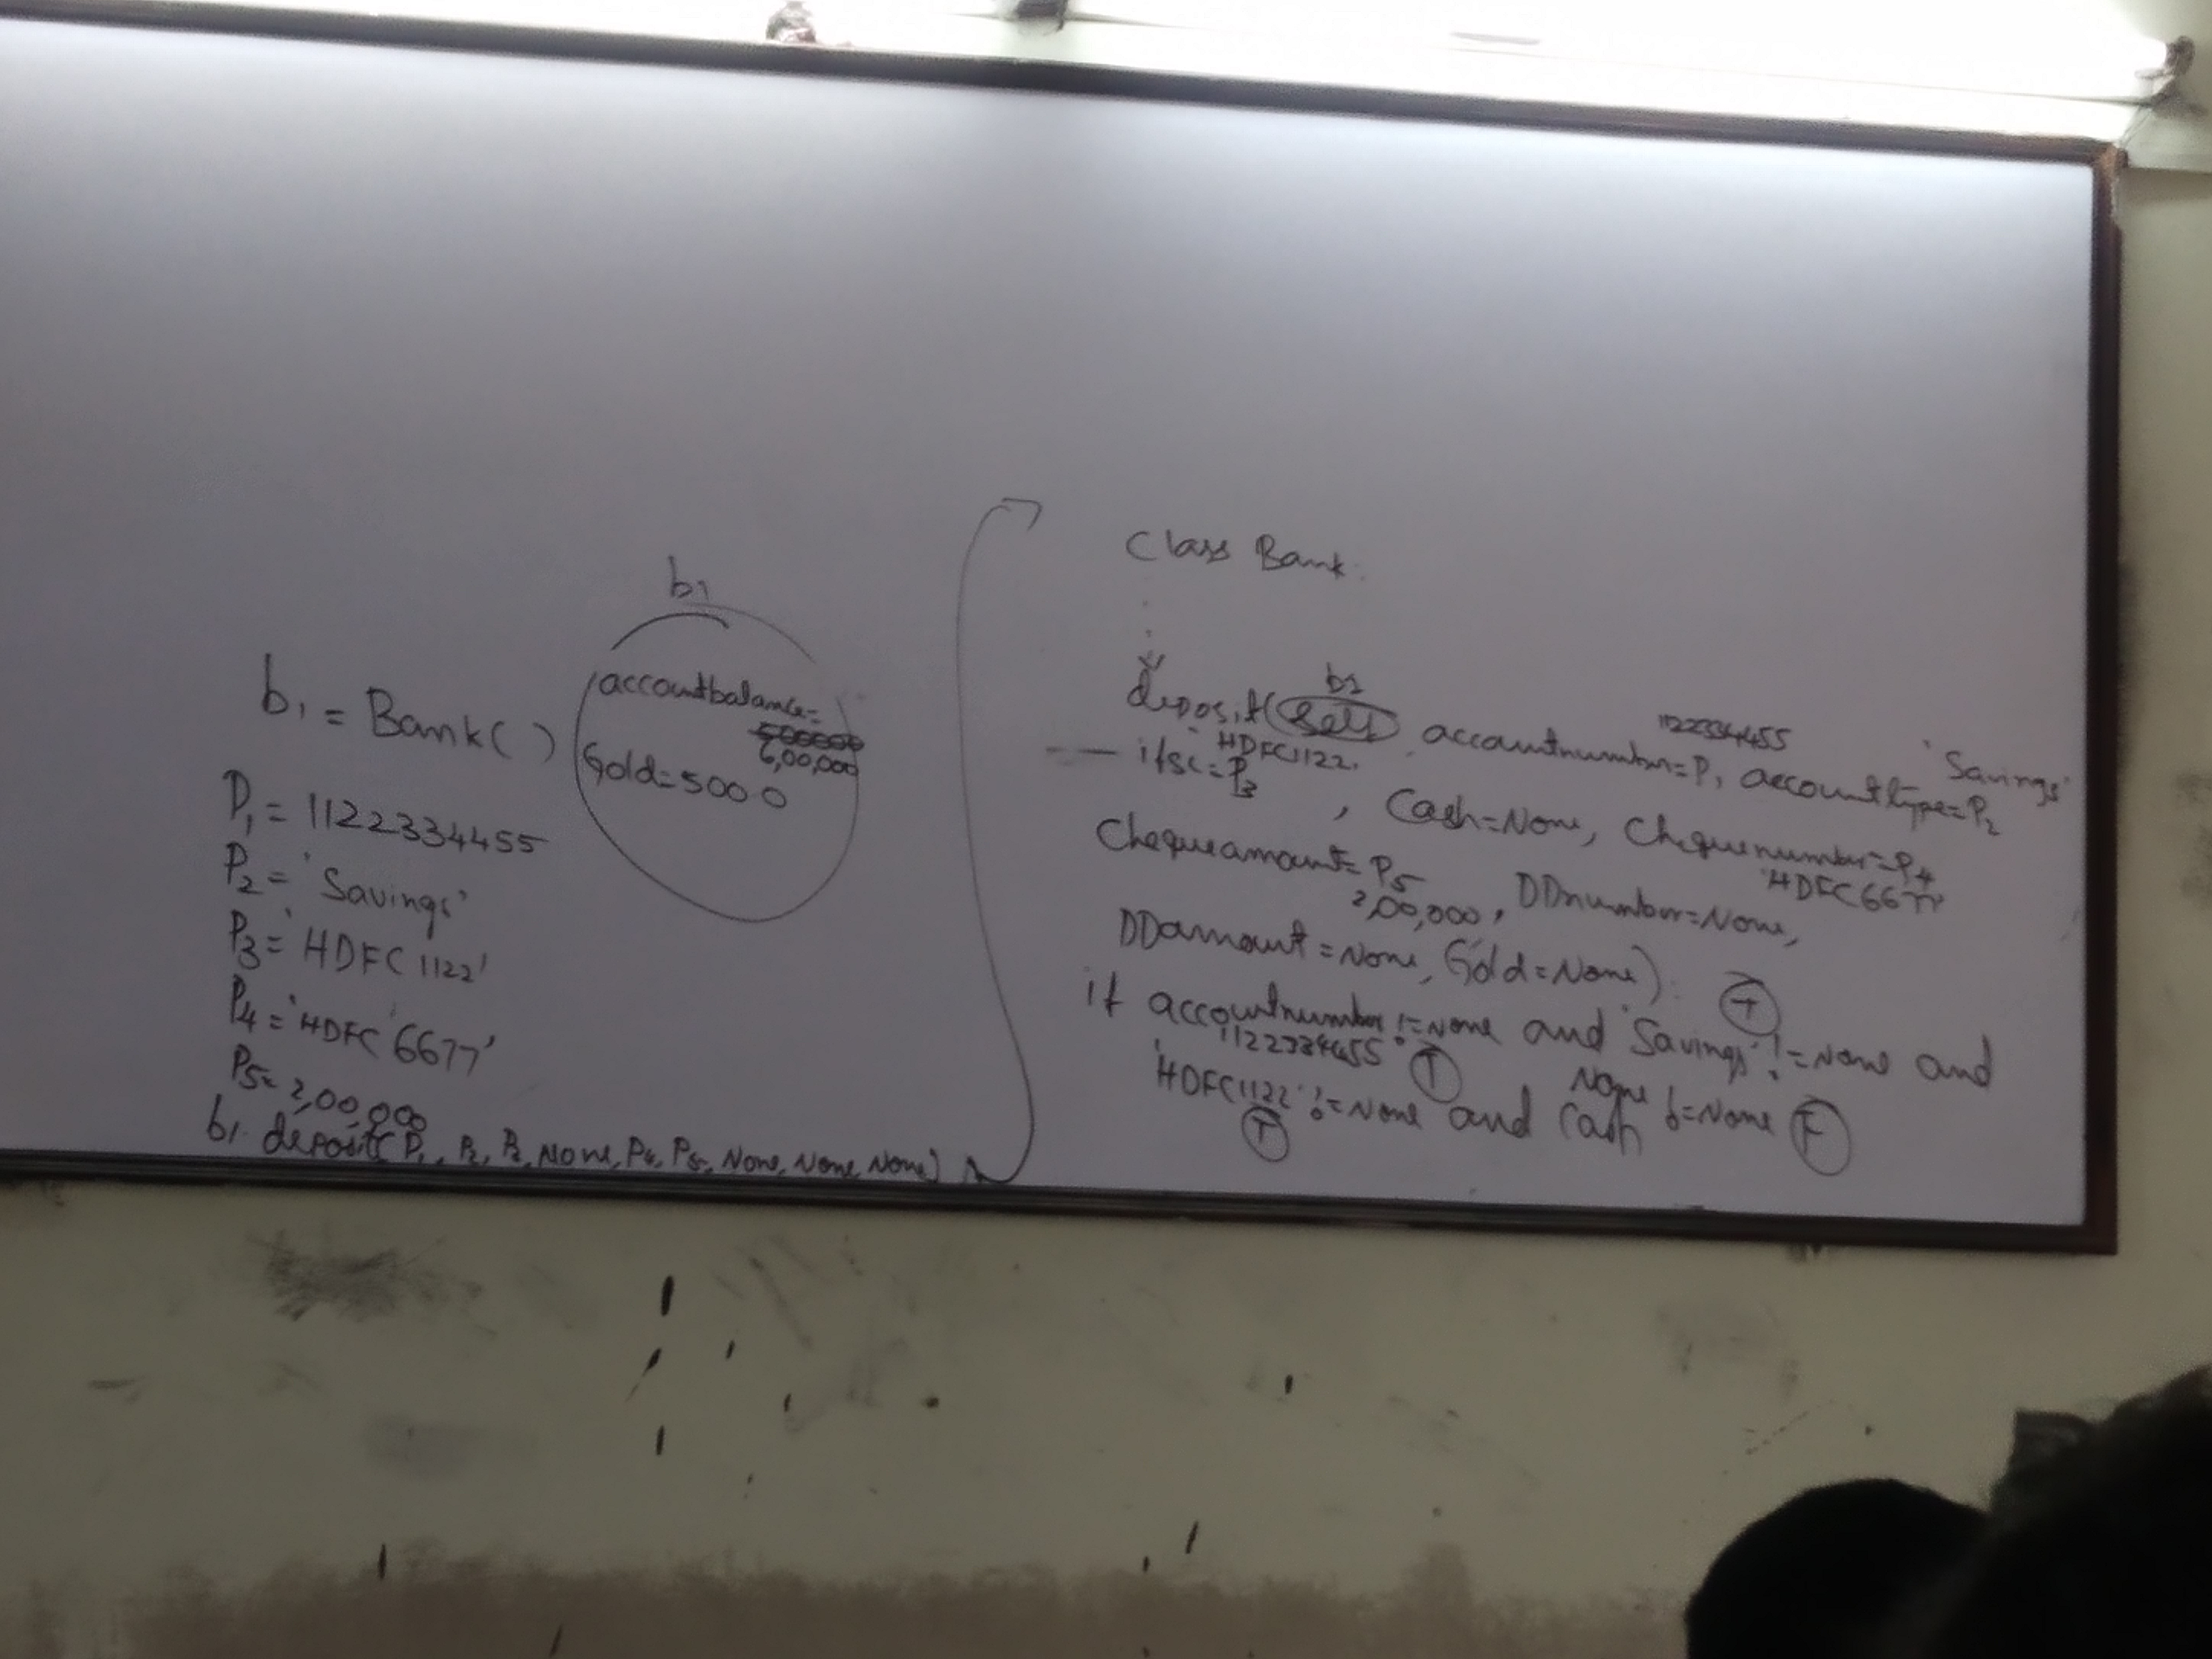 b1
b1 = Bank( )
accountbalance=
500000
6,00,000
Gold=5000
P1 = 1122334455
P2 = 'Savings'
P3 = 'HDFC1122'
P4 = 'HDFC6677'
P5= 2,00,000
b1. deposit(P1, P2, P3, None, P4, P5, None, None, None)
Class Bank:
b1
deposit(Self, accountnumber=P1, accounttype=P2
1122334455
'Savings'
HDFC1122
ifsc=P3, Cash=None, Chequenumber=P4
'HDFC6677'
Chequeamount=P5, DDnumber=None,
2,00,000
DDamount=None, Gold=None):
T
if accountnumber!=None and 'Savings'!=None and
1122334455 T
None
'HDFC1122'!=None and Cash !=None F
T